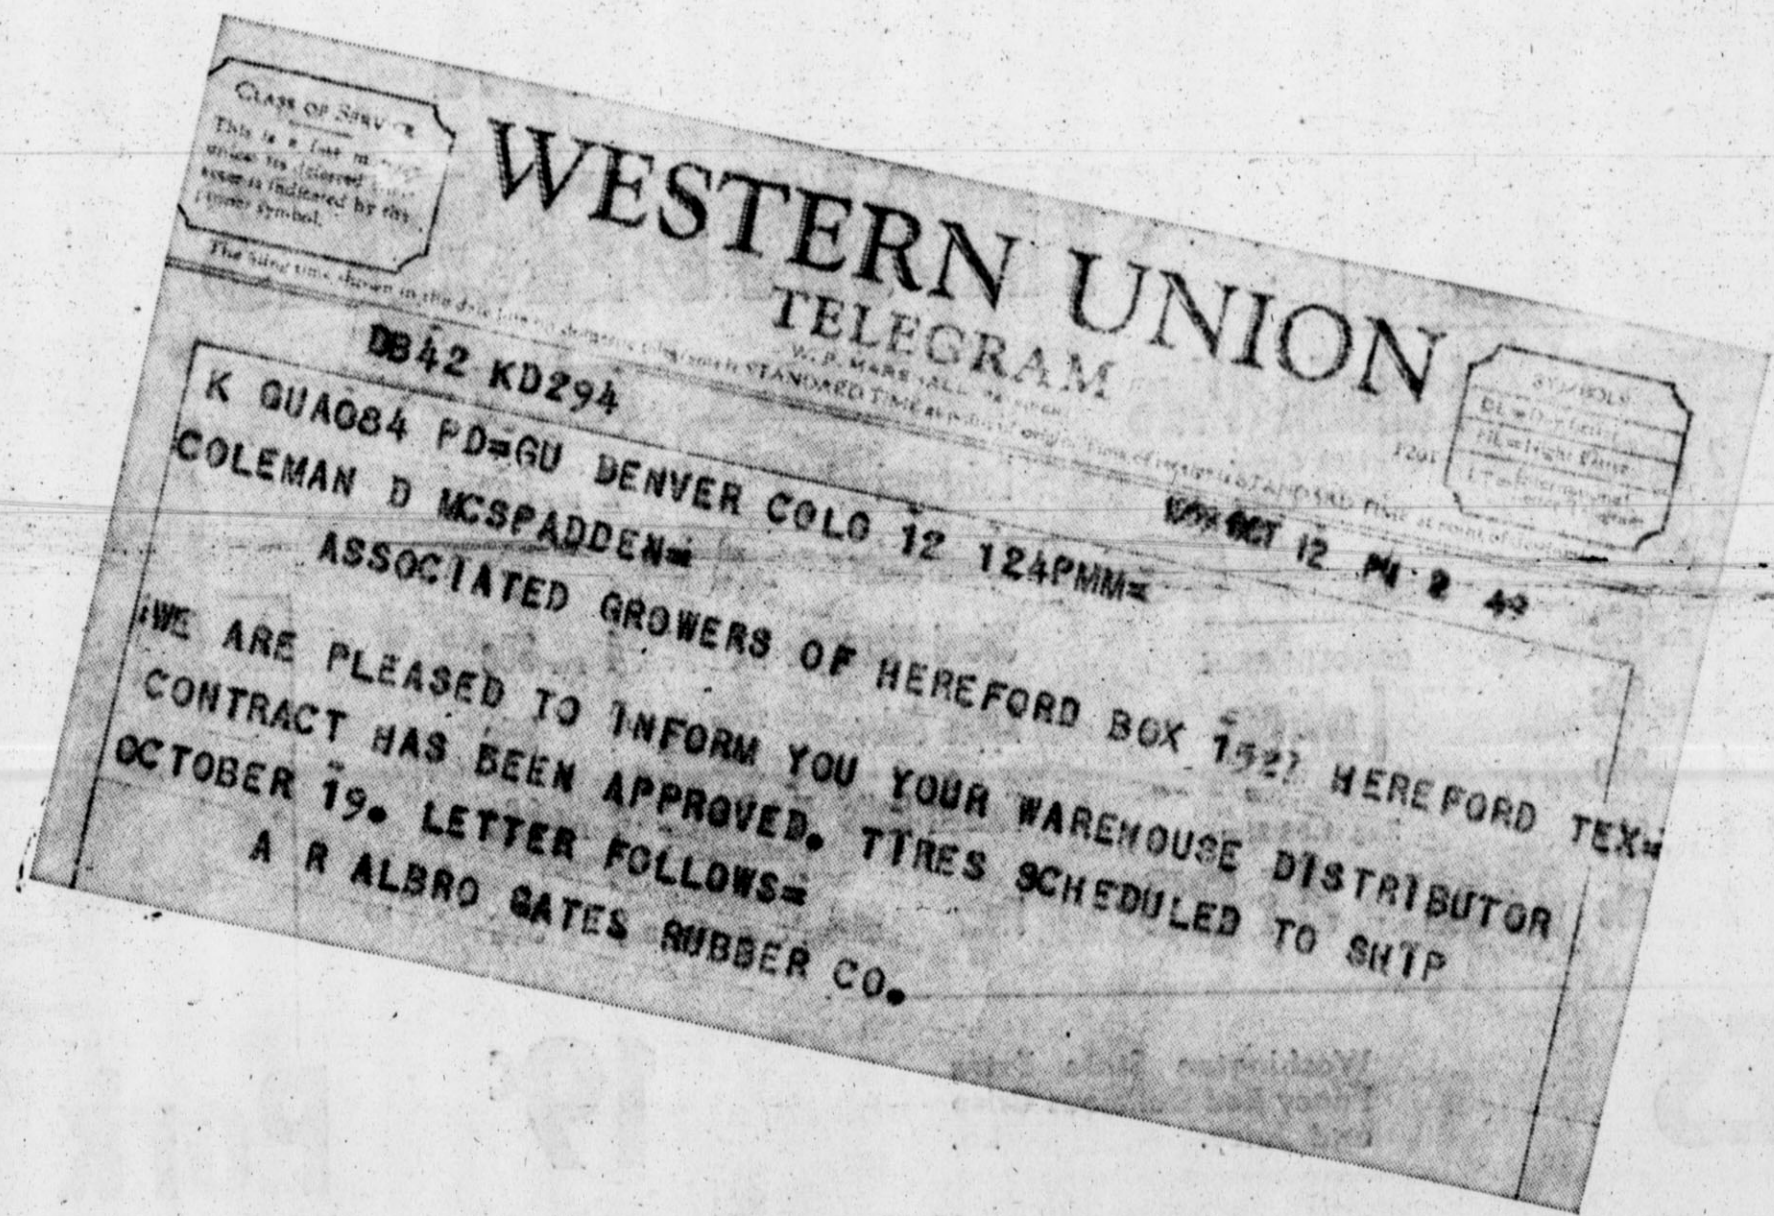 CLASS OF SERVICE
This is a fast message
unless its deferred char-
acter is indicated by the
proper symbol.
WESTERN UNION
TELEGRAM
W. P. MARSHALL, PRESIDENT
1201
SYMBOLS
DL=Day Letter
NL=Night Letter
LT=International Letter Telegram
The filing time shown in the date line on domestic telegrams is STANDARD TIME at point of origin. Time of receipt is STANDARD TIME at point of destination
DB42 KD294
OCT 12 PM 2 49
K GUA084 PD=GU DENVER COLO 12 124PMM=
COLEMAN D MCSPADDEN=
ASSOCIATED GROWERS OF HEREFORD BOX HEREFORD TEX=
WE ARE PLEASED TO INFORM YOU YOUR WAREHOUSE DISTRIBUTOR
CONTRACT HAS BEEN APPROVED. TIRES SCHEDULED TO SHIP
OCTOBER 19. LETTER FOLLOWS=
A R ALBRO GATES RUBBER CO.